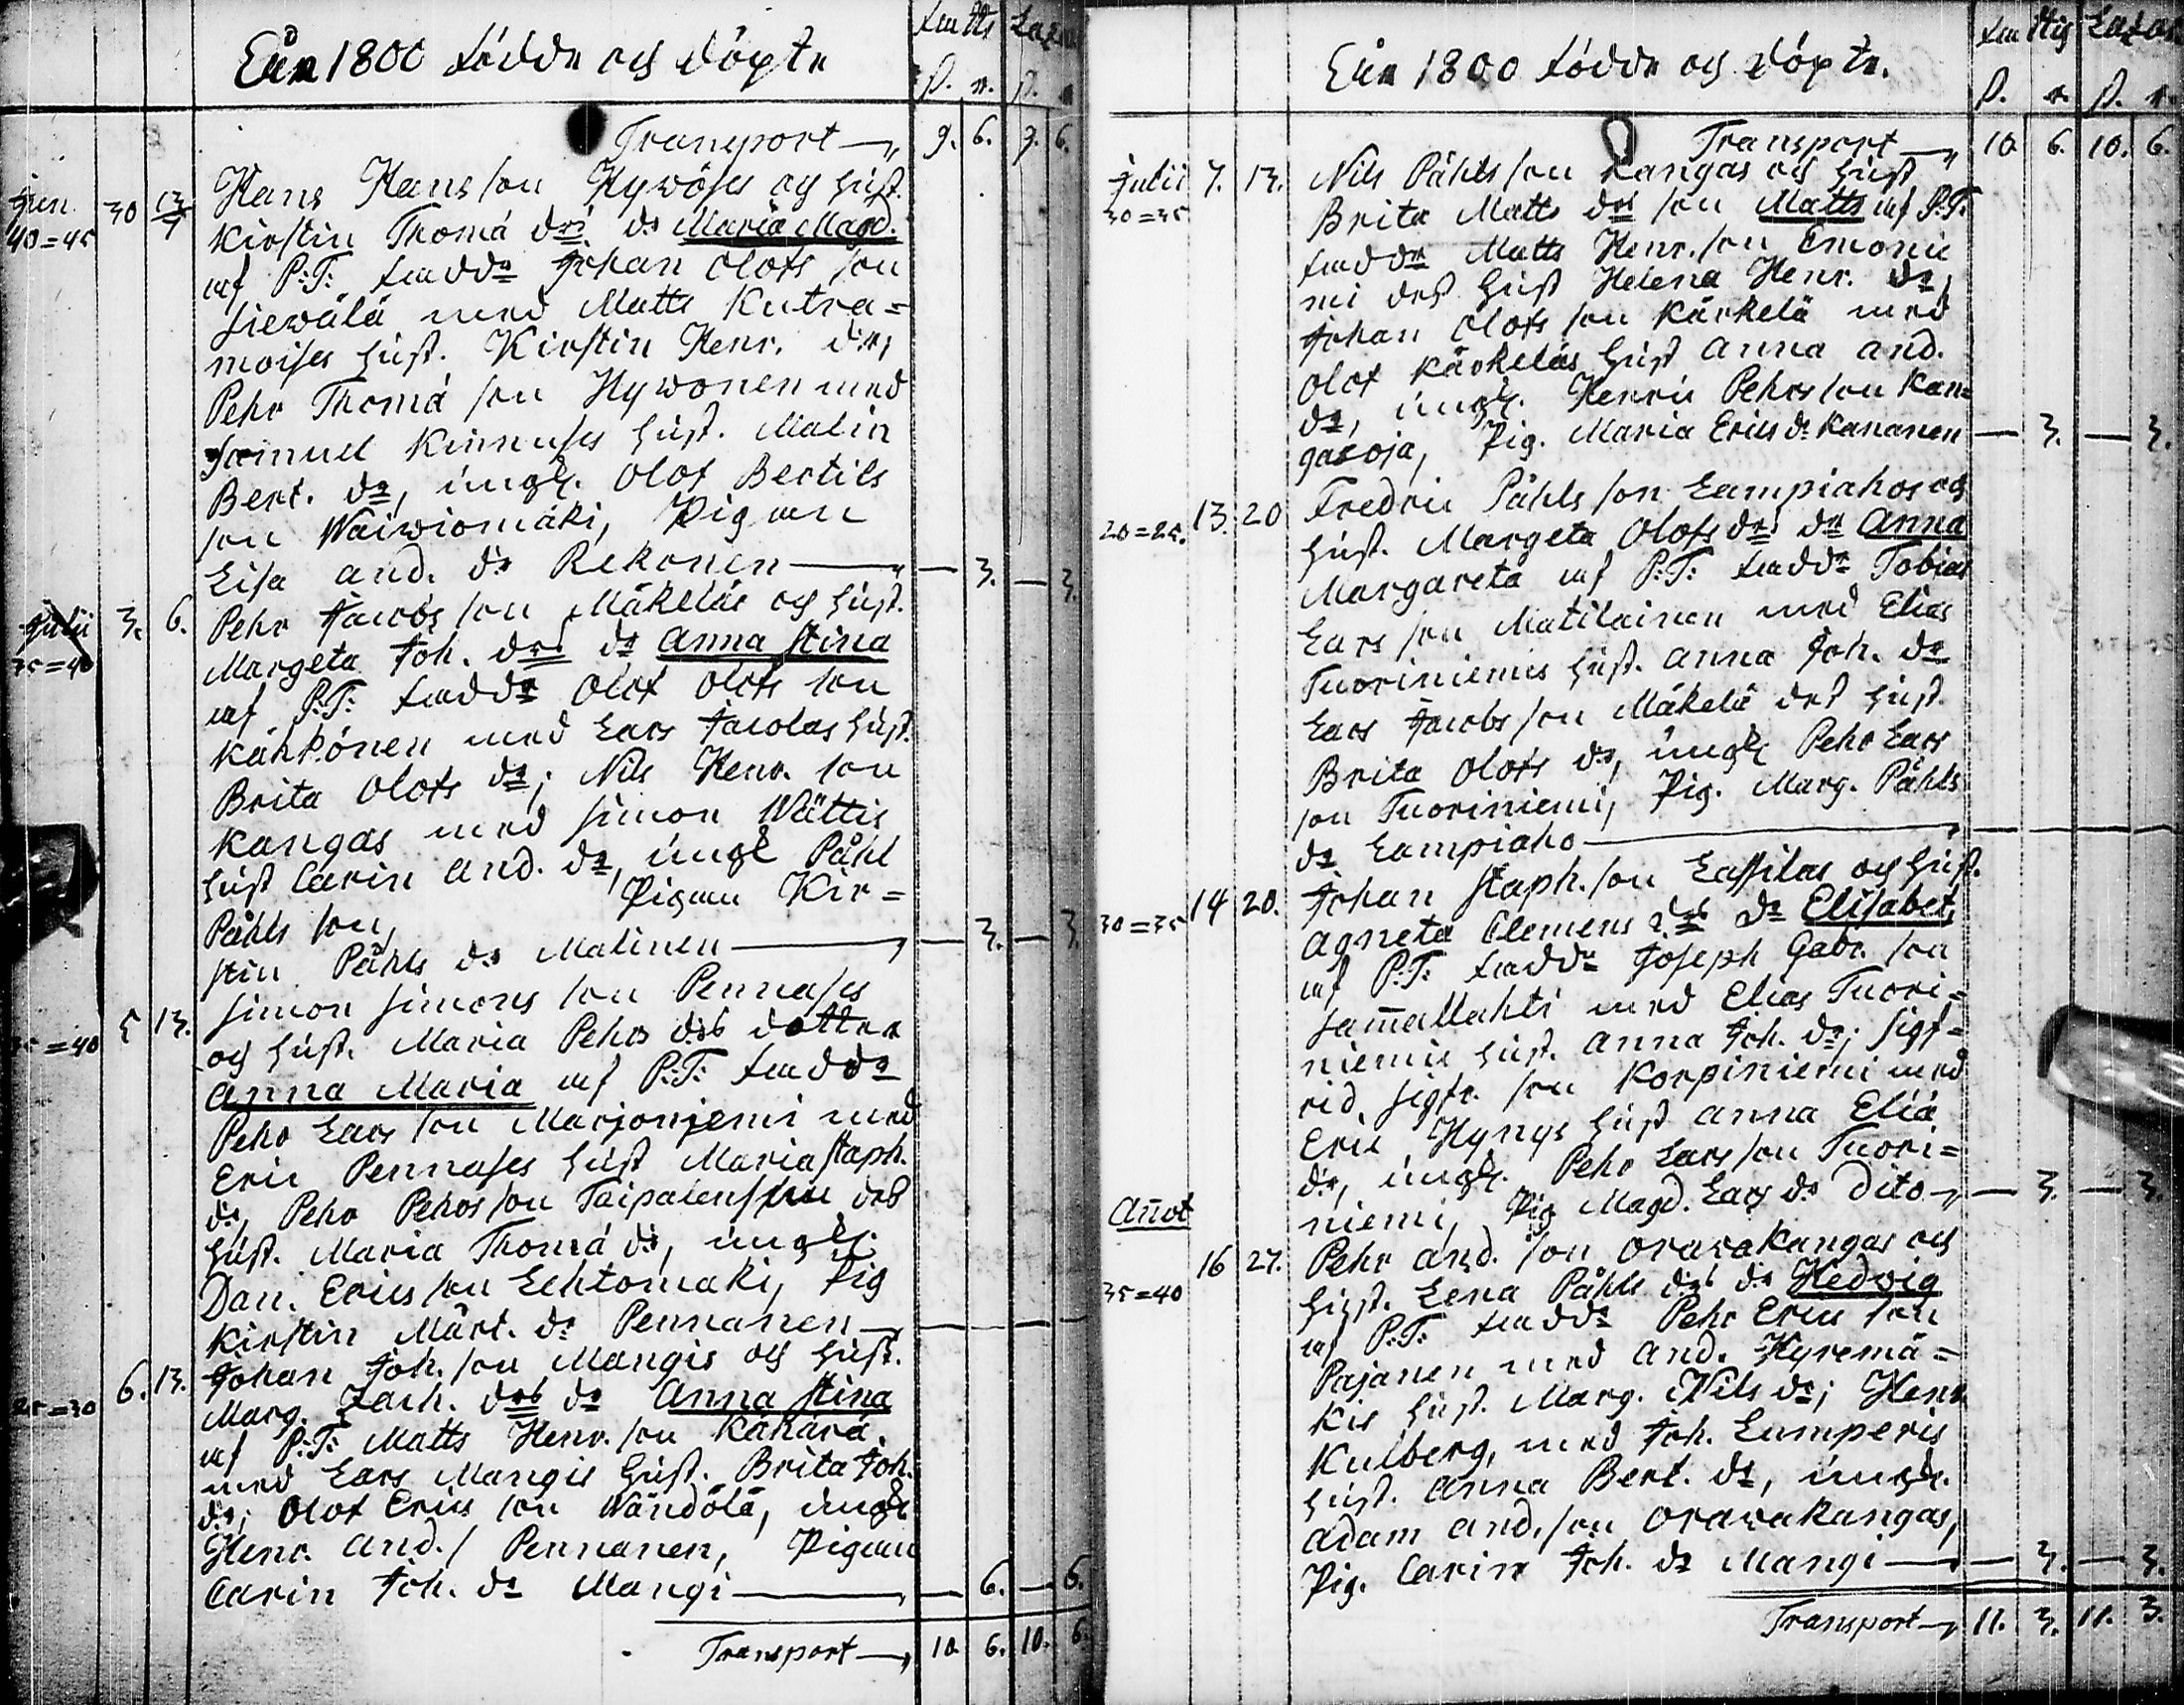 Åhr 1800 födde och döpte
Transport
9. 6. 9. 6.
Jun. 30 13/7 Hans Hansson Hywöses och hust.
40=45 Kirstin Thomæ drs dr Maria Magd.
af P:T: fadd: Johan Olofs son
Siewälä med Matts Kutra=
moises hust. Kirstin Henr. dr,
Pehr Thomæ son Hywönen med
Samuel Kinnuses hust. Malin
Bert. dr, ungk. Olof Bertils
son Waiwiomäki, Pigan
Lisa And. dr Rekonen — 3. — 3.
Julii 3. 6. Pehr Jacobs son Mäkeläs och hust.
35=40 Margeta Joh. drs dr Anna Stina
af P.T: fadd: Olof Olofs son
Kähkönen med Lars Jacolas hust.
Brita Olofs dr; Nils Henr. son
Kangas med Simon Wättis
hust Carin And. dr, ungk Påhl
Påhls son, Pigan Kir=
stin Påhls dr Malinen — 3. — 3.
5 13. Simon Simons son Pennases
35=40 och hust. Maria Pehrs drs dotter
Anna Maria af P:T: fadd:
Pehr Lars son Marjoniemi med
Eric Pennases hust Maria Staph.
dr, Pehr Pehrs son Taipalensuu des
hust. Maria Thomæ dr, ungk.
Dan. Erics son Lehtomäki, Pig
Kirstin Mårt. dr Pennanen
6. 13. Johan Joh. son Mangis och hust.
25=30 Marg. Zach. drs dr Anna Stina
af P:T: Matts Henr. son Kähärä.
med Lars Mangis hust. Brita Joh.
dr; Olof Erics son Wändölä, ungk
Henr. And. s Pennanen, Pigan
Carin Joh. dr Mangi — 6. — 6.
Transport 10. 6. 10. 6.
Åhr 1800 födde och döpte.
Transport 10. 6. 10. 6.
Julii 7. 13. Nils Påhls son Kangas och hust
30=35 Brita Matts drs son Matts af P.T.
fadd: Matts Henr. son Emonie
mi des hust Helena Henr. dr,
Johan Olofs son Kärkelä med
Olof Kärkeläs hust Anna And.
dr, ungk. Henric Pehrs son Kan=
gasoja, Pig. Maria Erics dr Kananen — 3. — 3.
13. 20 Fredric Påhls son Lampiahos och
20=25. hust. Margeta Olofs drs dr Anna
Margareta af P:T: fadd: Tobias
Lars son Matilainen med Elias
Tuoriniemis hust. Anna Joh. dr
Lars Jacobs son Mäkelä des hust.
Brita Olofs dr, ungk Pehr Lars
son Tuoriniemi, Pig. Marg. Påhls
dr Lampiaho
14 20. Johan Staph. son Lassilas och hust.
30=35 Agneta Clemens drs dr Elisabet,
af P:T: fadd: Joseph Gabr. son
Sammallahti med Elias Tuori=
niemis hust. Anna Joh. dr; Sigf=
rid. Sigfr. son Korpiniemi med
Eric Hyngs hust Anna Eliæ
dr, ungk. Pehr Lars son Tuori=
niemi, Pig Magd. Lars dr Dito — 3. — 3.
16 27. Pehr And. son Orawakangas och
35=40 hust. Lena Påhls drs dr Hedwig
af P:T: fadd: Pehr Erics son
Pajanen med And. Hyremä=
kis hust. Marg. Nils dr; Henr
Kulberg, med Joh. Lumperis
hust. Anna Bert. dr, ungk.
Adam And. son Orawakangas,
Pig. Carin Joh. dr Mangi — 3. — 3.
Transport 11. 3. 11. 3.